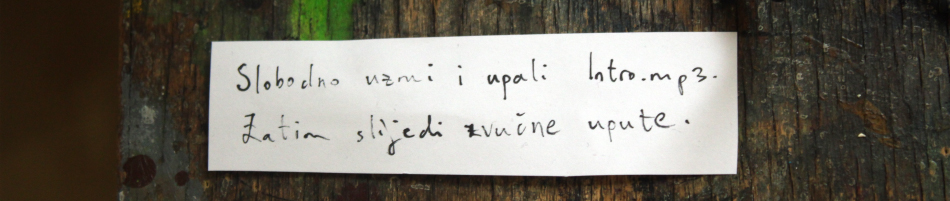 Slobodno uzmi i upali Intro.mp3.
Zatim slijedi zvučne upute.